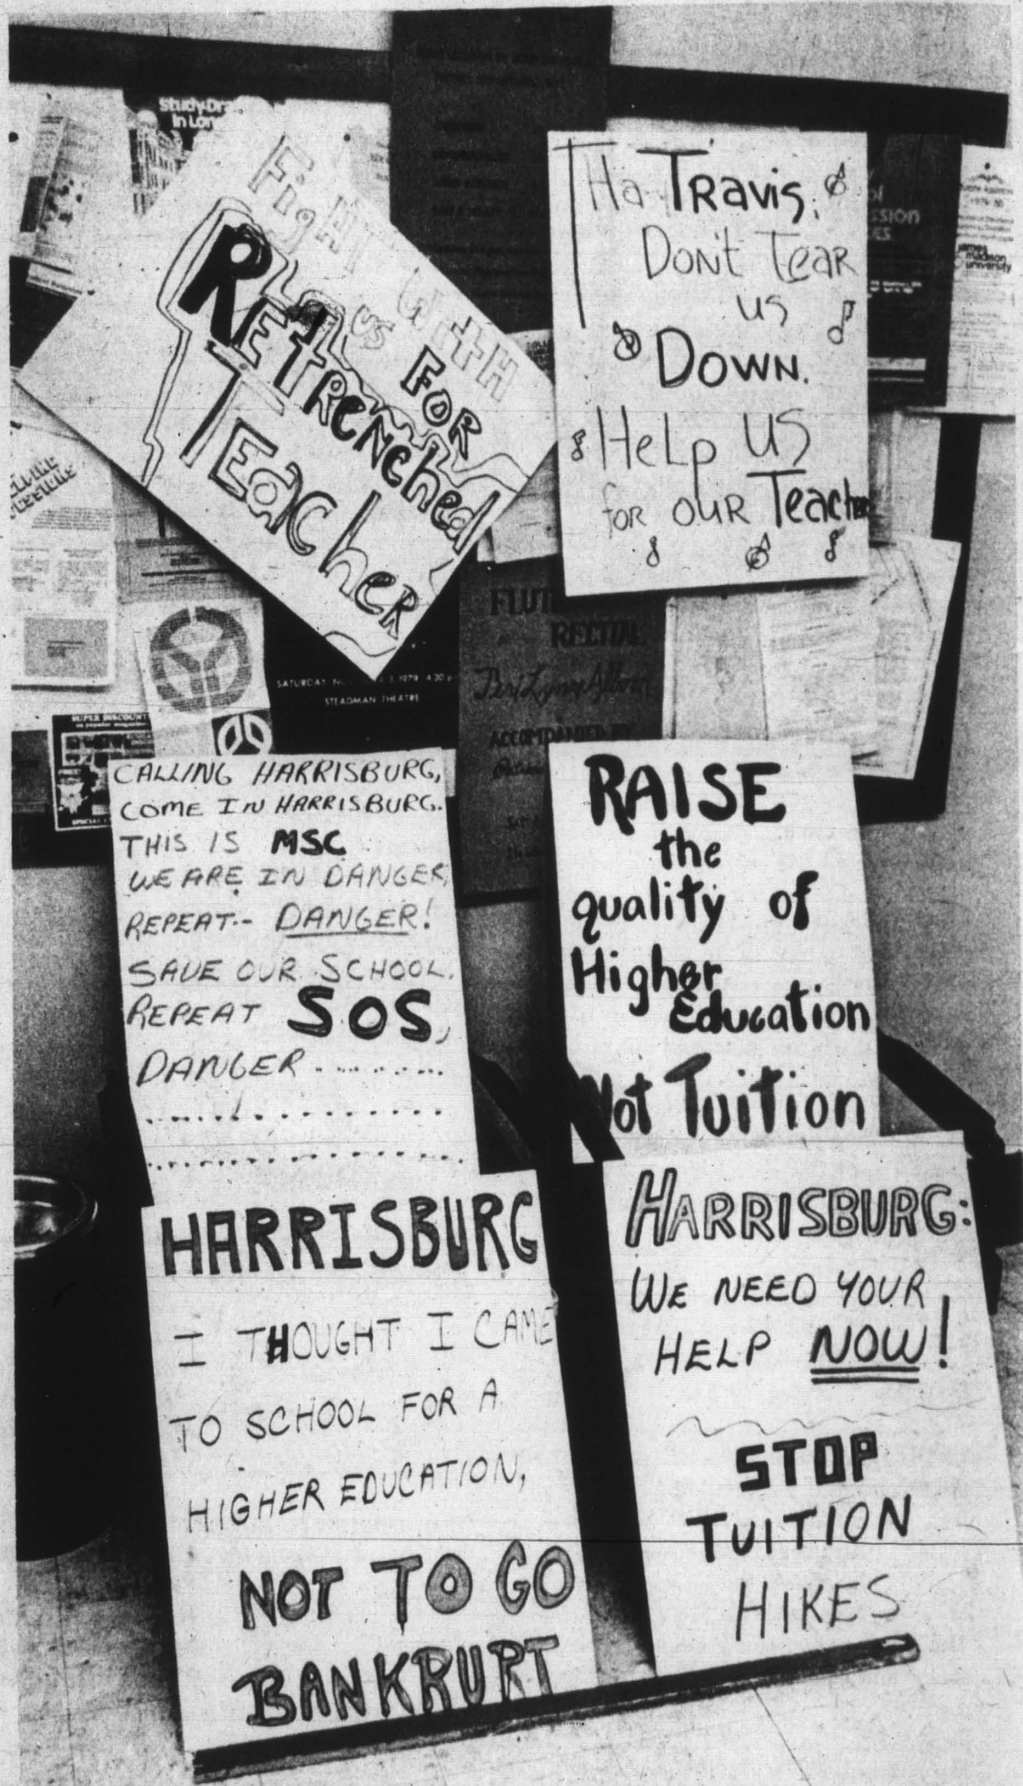 Study
in Lon
Fight With
us FOR
REtRENChed
TEacHER
Ha-Travis,
Don't Tear
us
DOWN.
HeLp US
for our Teache
james
madison
university
SATURDAY
1979 4:30 p
STEADMAN THEATRE
FLUT
RECITAL
By Lynn
ACCOMPANIED BY
SUPER DISCOUNT
CALLING HARRISBURG,
COME IN HARRISBURG.
THIS IS MSC
WE ARE IN DANGER,
REPEAT-- DANGER!
SAVE OUR SCHOOL.
REPEAT SOS,
DANGER.........
RAISE
the
quality of
Higher
Education
Not Tuition
HARRISBURG
I THOUGHT I CAME
TO SCHOOL FOR A
HIGHER EDUCATION,
NOT TO GO
BANKRUPT
HARRISBURG:
WE NEED YOUR
HELP NOW!
STOP
TUITION
HIKES